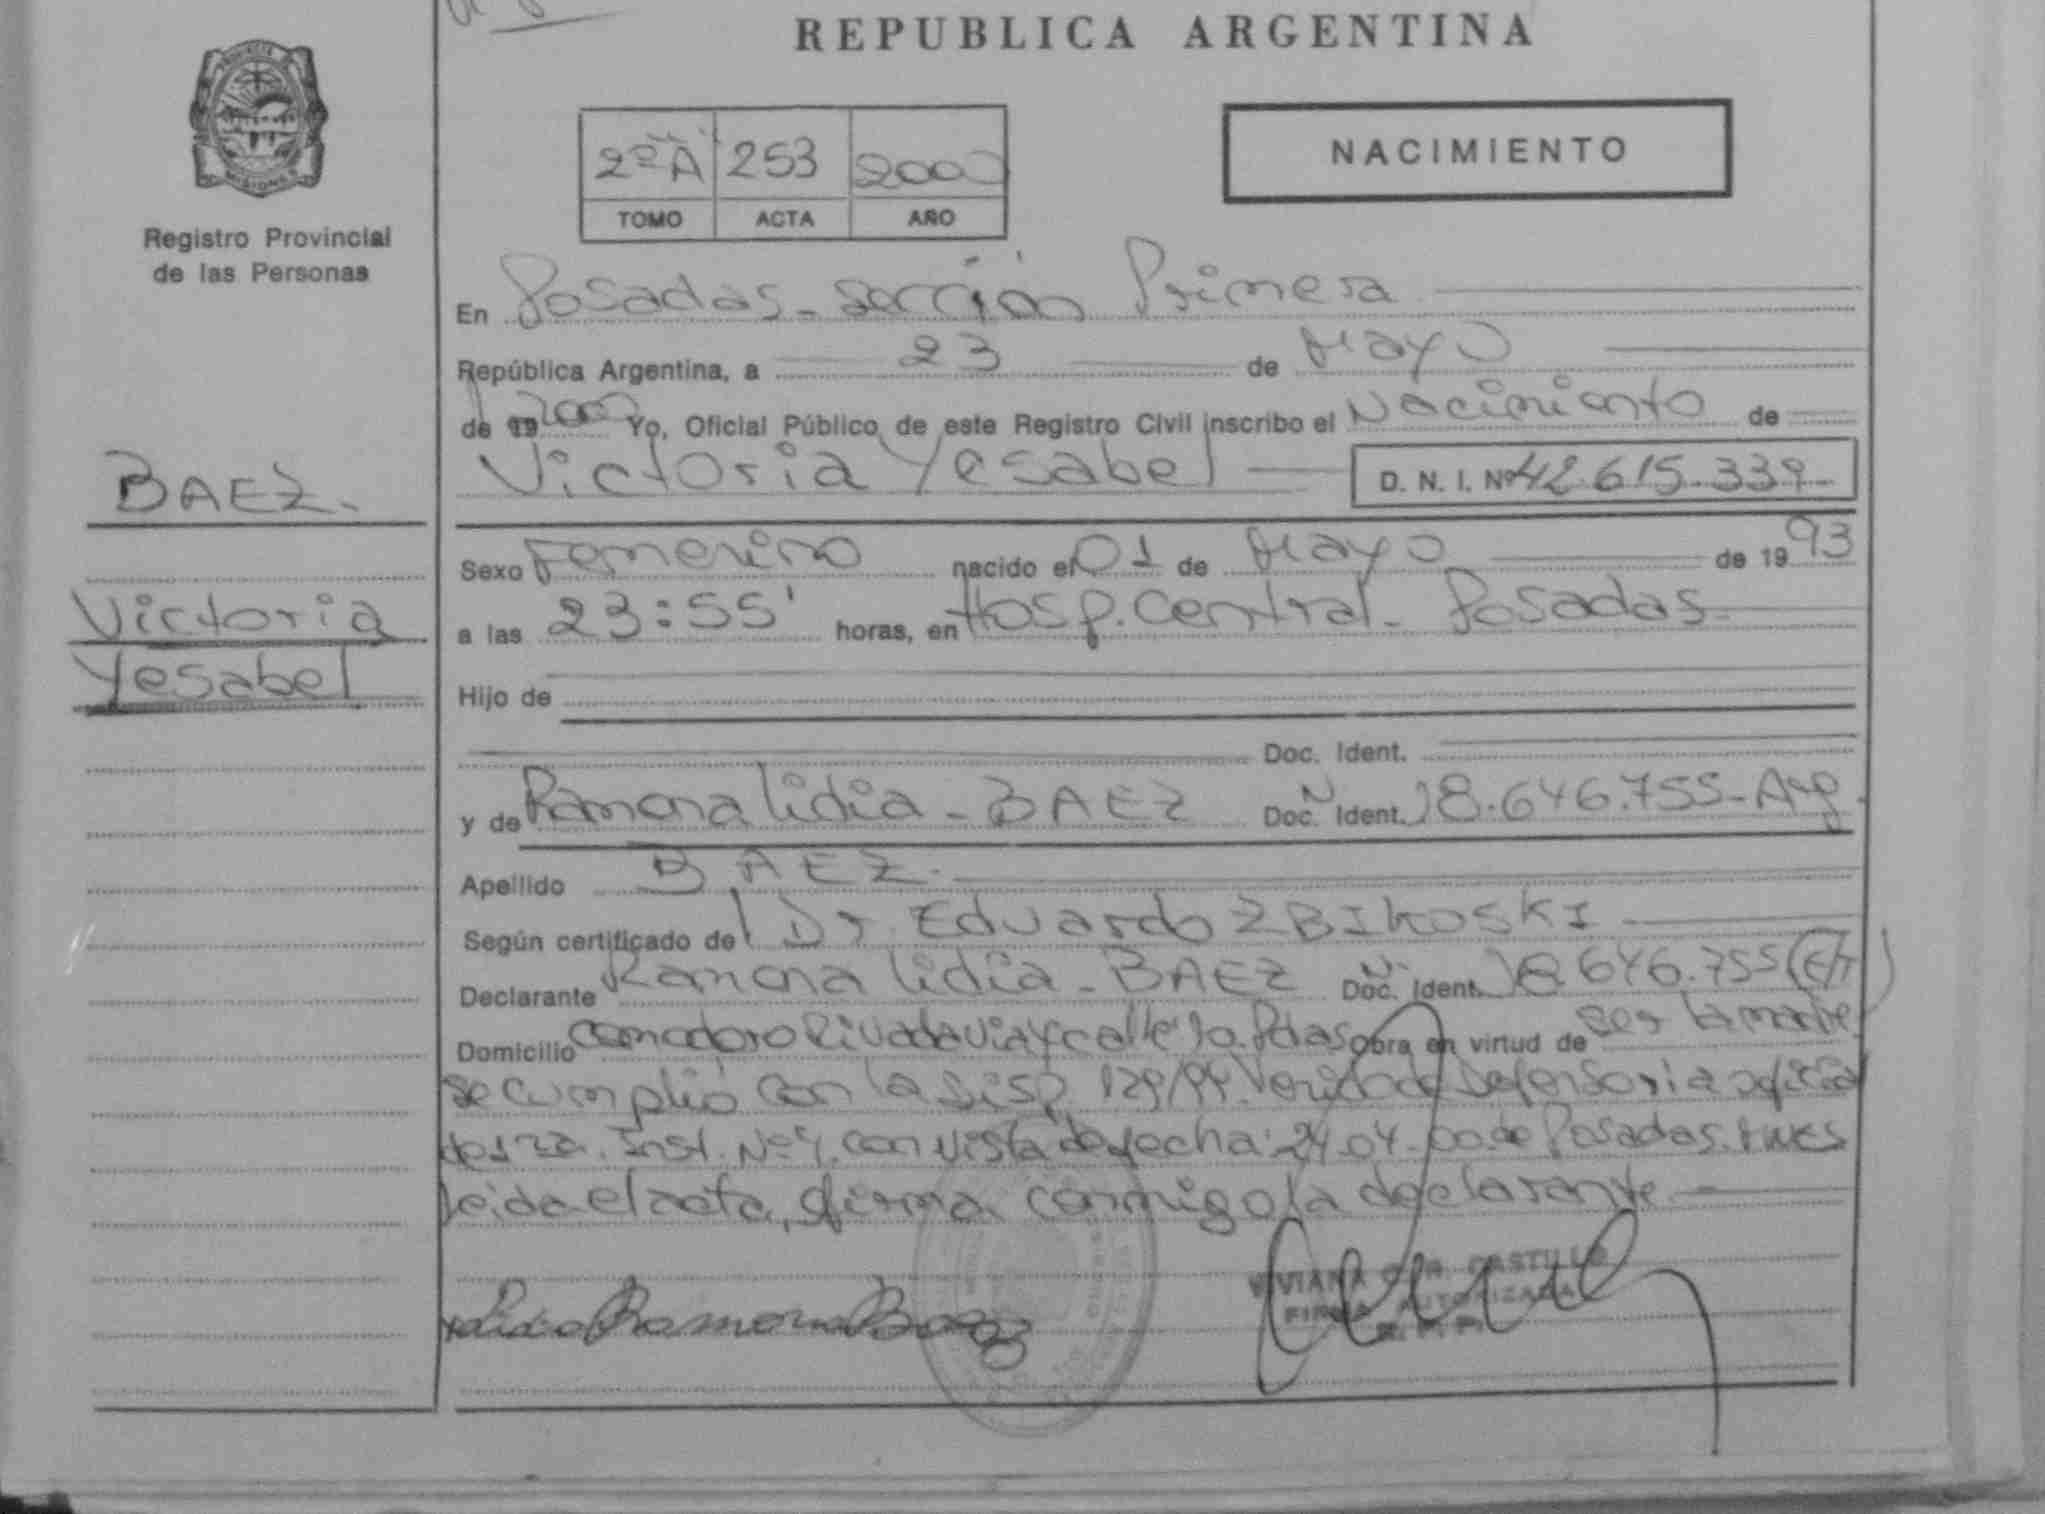 REPUBLICA ARGENTINA
PROVINCIA DE
MISIONES
Registro Provincial
de las Personas
2º A 253 2000
TOMO ACTA AÑO
NACIMIENTO
En Posadas - Sección Primera
República Argentina, a 23 de Mayo
de 19 2000 Yo, Oficial Público de este Registro Civil inscribo el Nacimiento de
Victoria Yesabel D. N. I. Nº 42.615.339
BAEZ.
Victoria
Yesabel
Sexo Femenino nacido el 01 de Mayo de 19 93
a las 23:55' horas, en Hosp. Central - Posadas
Hijo de
Doc. Ident.
y de Ramona Lidia - BAEZ Doc. Ident. 18.646.755 - Arg.
Apellido BAEZ.
Según certificado de Dr. Eduardo ZBIKOSKI
Declarante Ramona Lidia - BAEZ Doc. Ident. 18.646.755
Domicilio Comodoro Rivadavia y calle Pdas Obra en virtud de ser la madre
se cumplió con la Disp. 129/99. Defensoria oficial
de 1ra. Inst. Nº 4. con vista de fecha: 24-04-00. de Posadas.
leida el acta, firma conmigo la declarante
Lidia Ramona Baez
VIVIANA CASTILLO
FIRMA AUTORIZADA
R. P. P.